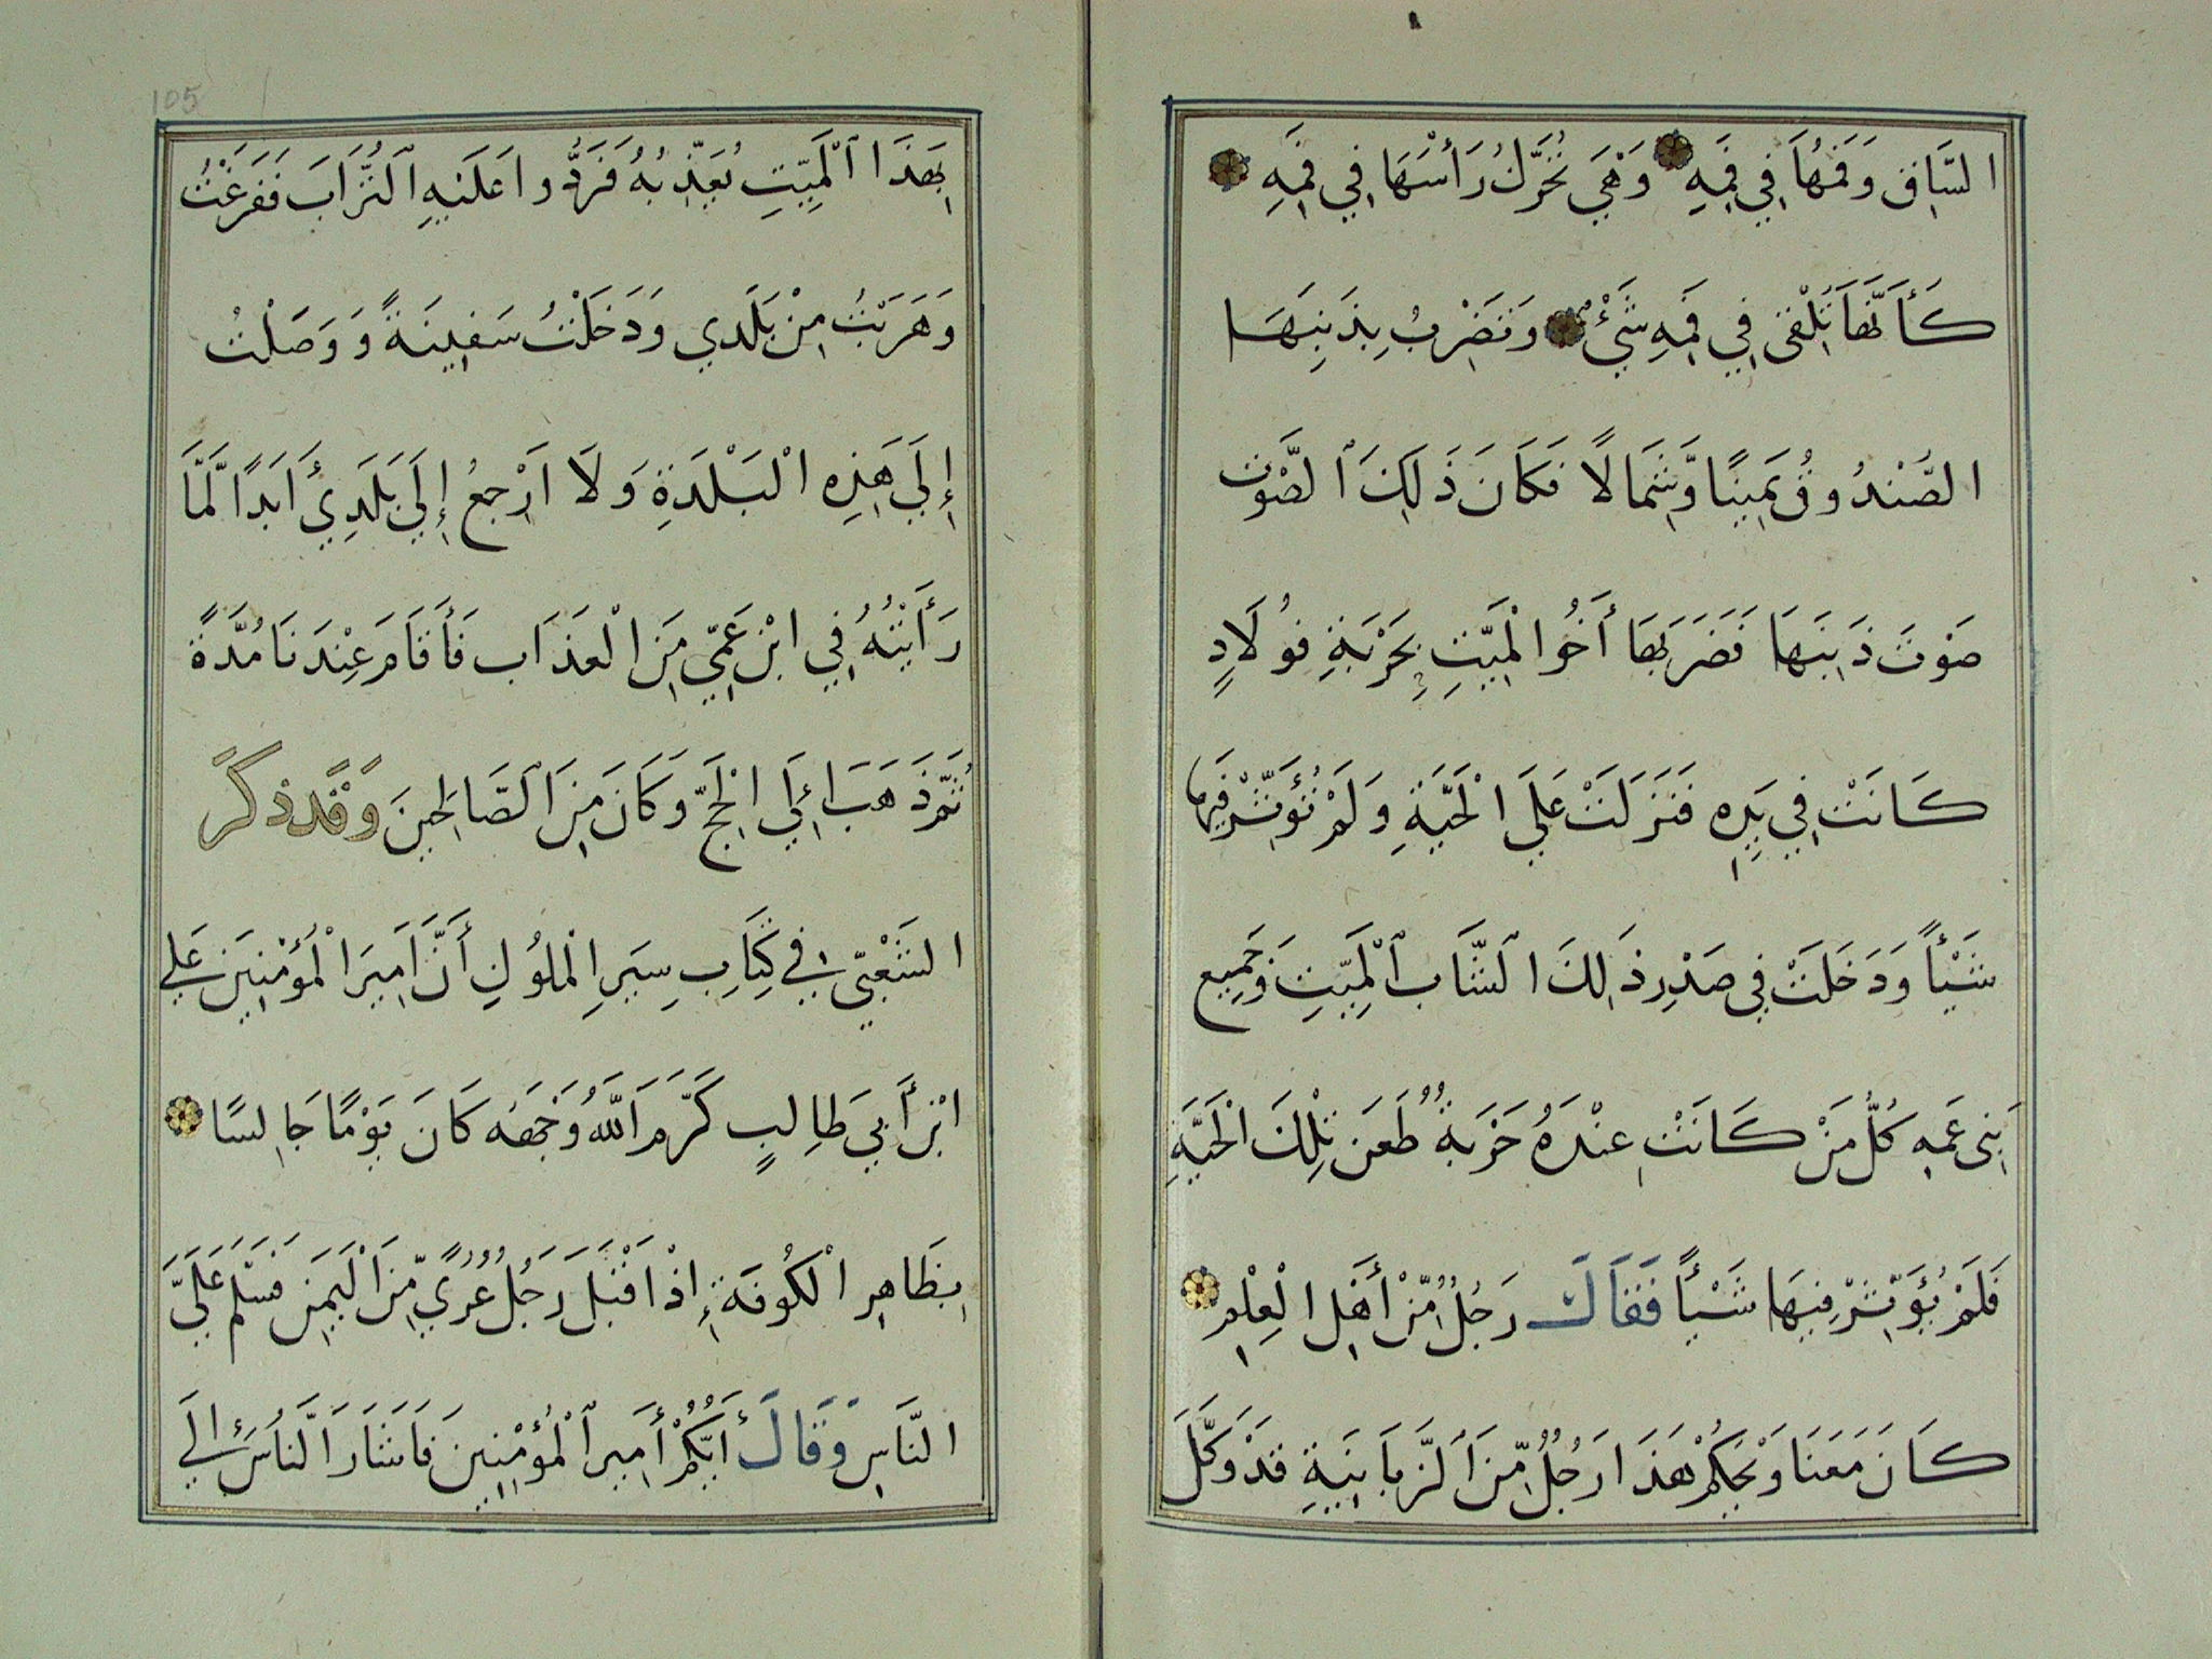 السَّاقِ وَفَمُهَا فِي فَمِهِ وَهْيَ تُحَرِّكُ رَأْسَهَا فِي فَمِهِ
كَأَنَّهَا تُلْقِى فِي فَمِهِ شَيْءٌ وَتَضْرِبُ بِذَنَبِهَا
الصُّنْدُوقُ يَمِينًا وَّشِمَالًا فَكَانَ ذَلِكَ ٱلصَّوْت
صَوْتَ ذَنَبِهَا فَضَرَبَهَا أَخُوا لْمَيِّتِ بِحَرْبَةِ فُولَادٍ
كَانَتْ فِي يَدِهِ فَنَزَلَتْ عَلَي الْحَيَّةِ وَلَمْ تُؤَثِّرْ فِيهَا
شَيْأً وَدَخَلَتْ فِي صَدْرِ ذَلِكَ الشَّاب ٱلْمَيِّتِ وَجَمِيع
بَنِى عَمِهِ كُلُّ مَنْ كَانَتْ عِنْدَهُ حَرْبَةٌ طَعَنَ تِلْكَ الْحَيَّةِ
فَلَمْ يُؤَثِّرْ فِيهَا شَيْأً فَقَالَ رَجُلٌ مِّنْ أَهْلِ الْعِلْمِ
كَانَ مَعَنَا وَيْحَكُمْ هَذَا رَجُلٌ مِّنَ ٱلزَّبَانِيَةِ قَدْ وَكَّلَ
105
بِهَذَا ٱلْمَيِّتِ يُعَذِّبُهُ فَرَدُّوا عَلَيْهِ ٱلتُّرَابَ فَفَرَغْتُ
وَهَرَبْتُ مِنْ بَلَدِي وَدَخَلْتُ سَفِينَةً وَوَصَلْتُ
إِلَي هَذِهِ الْبَلْدَةِ وَلَا اَرْجِعُ إِلَي بَلَدِي أَبَدًا لَّمَّا
رَأَيْتُهُ فِي ابْنِ عَمِّي مِنَ الْعَذَاب فَأَقَامَ عِنْدَنَا مُدَّةً
ثُمَّ ذَهَبَ إِلَي الْحَجِّ وَكَانَ مِنَ ٱلصَّالِحِينَ وَقَد ذكَرَ
الشَّعْبِيّ فِي كِتَابِ سِيَرِ الْمُلُوكِ أَنَّ اَمِيرَ الْمُؤْمِنِينَ عَلِي
ابْنَ أَبِي طَالِبٍ كَرَّمَ اَللَّهُ وَجْهَهُ كَانَ يَوْمًا جَالِسًا
بِظَاهِرِ الْكُوفَةِ إِذْ اَقْبَلَ رَجُلٌ عُرْيٌ مِّنَ الْيَمَنِ فَسَلَّمَ عَلَيَّ
النَّاسِ وَقَالَ أَيُّكُمْ أَمِير ٱلْمُؤْمِنِينَ فَاَشَارَ النَّاسُ إِلَي